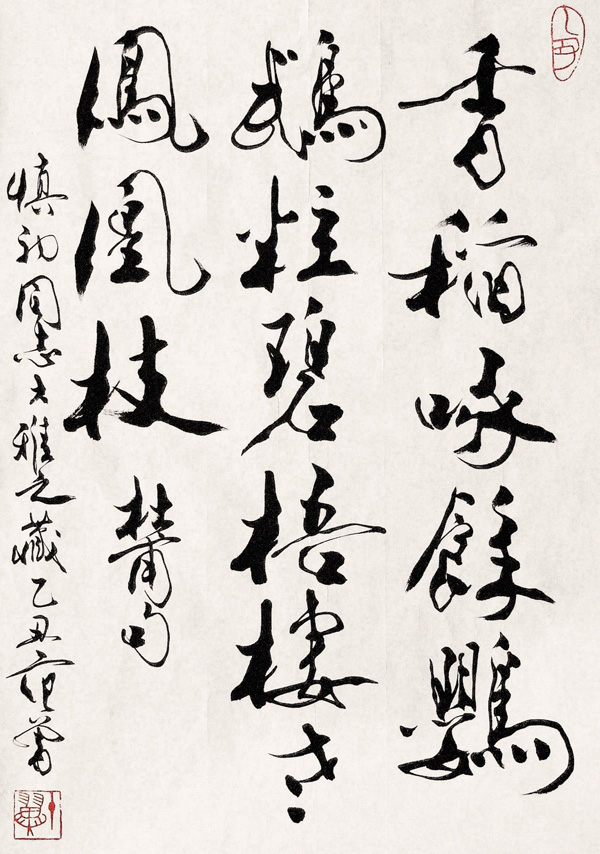 香稻啄餘鸚
鵡粒碧梧棲老
鳳凰枝
杜甫句
慎初同志大雅之藏乙丑范曾
十翼